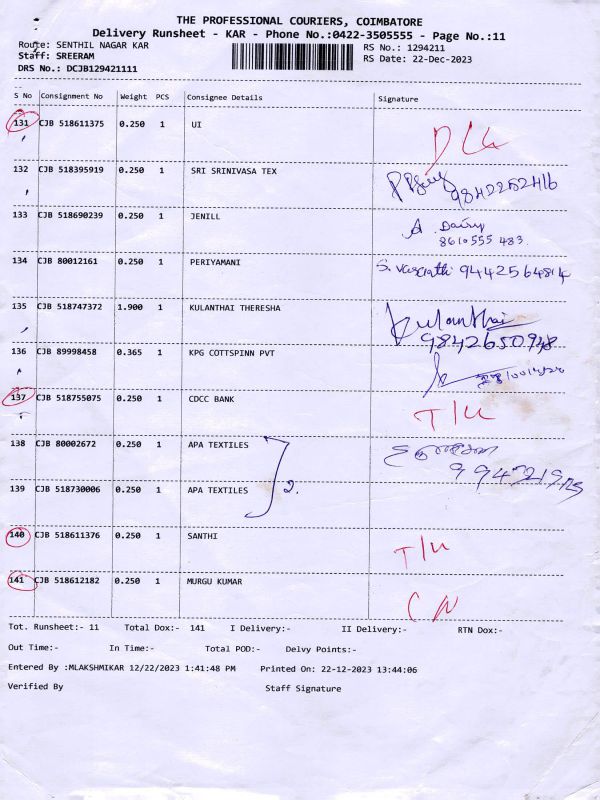 THE PROFESSIONAL COURIERS, COIMBATORE
Delivery Runsheet - KAR - Phone No.:0422-3505555 - Page No.:11
Route: SENTHIL NAGAR KAR RS No.: 1294211
Staff: SREERAM RS Date: 22-Dec-2023
DRS No.: DCJB129421111
S No Consignment No Weight PCS Consignee Details Signature
131 CJB 518611375 0.250 1 UI
132 CJB 518395919 0.250 1 SRI SRINIVASA TEX
9842252416
133 CJB 518690239 0.250 1 JENILL
8610555 483.
134 CJB 80012161 0.250 1 PERIYAMANI 9442564814
135 CJB 518747372 1.900 1 KULANTHAI THERESHA Kulanthai
9842650948
136 CJB 89998458 0.365 1 KPG COTTSPINN PVT
137 CJB 518755075 0.250 1 CDCC BANK T/U
138 CJB 80002672 0.250 1 APA TEXTILES
139 CJB 518730006 0.250 1 APA TEXTILES 2.
140 CJB 518611376 0.250 1 SANTHI T/U
141 CJB 518612182 0.250 1 MURGU KUMAR
Tot. Runsheet:- 11 Total Dox:- 141 I Delivery:- II Delivery:- RTN Dox:-
Out Time:- In Time:- Total POD:- Delvy Points:-
Entered By :MLAKSHMIKAR 12/22/2023 1:41:48 PM Printed On: 22-12-2023 13:44:06
Verified By Staff Signature